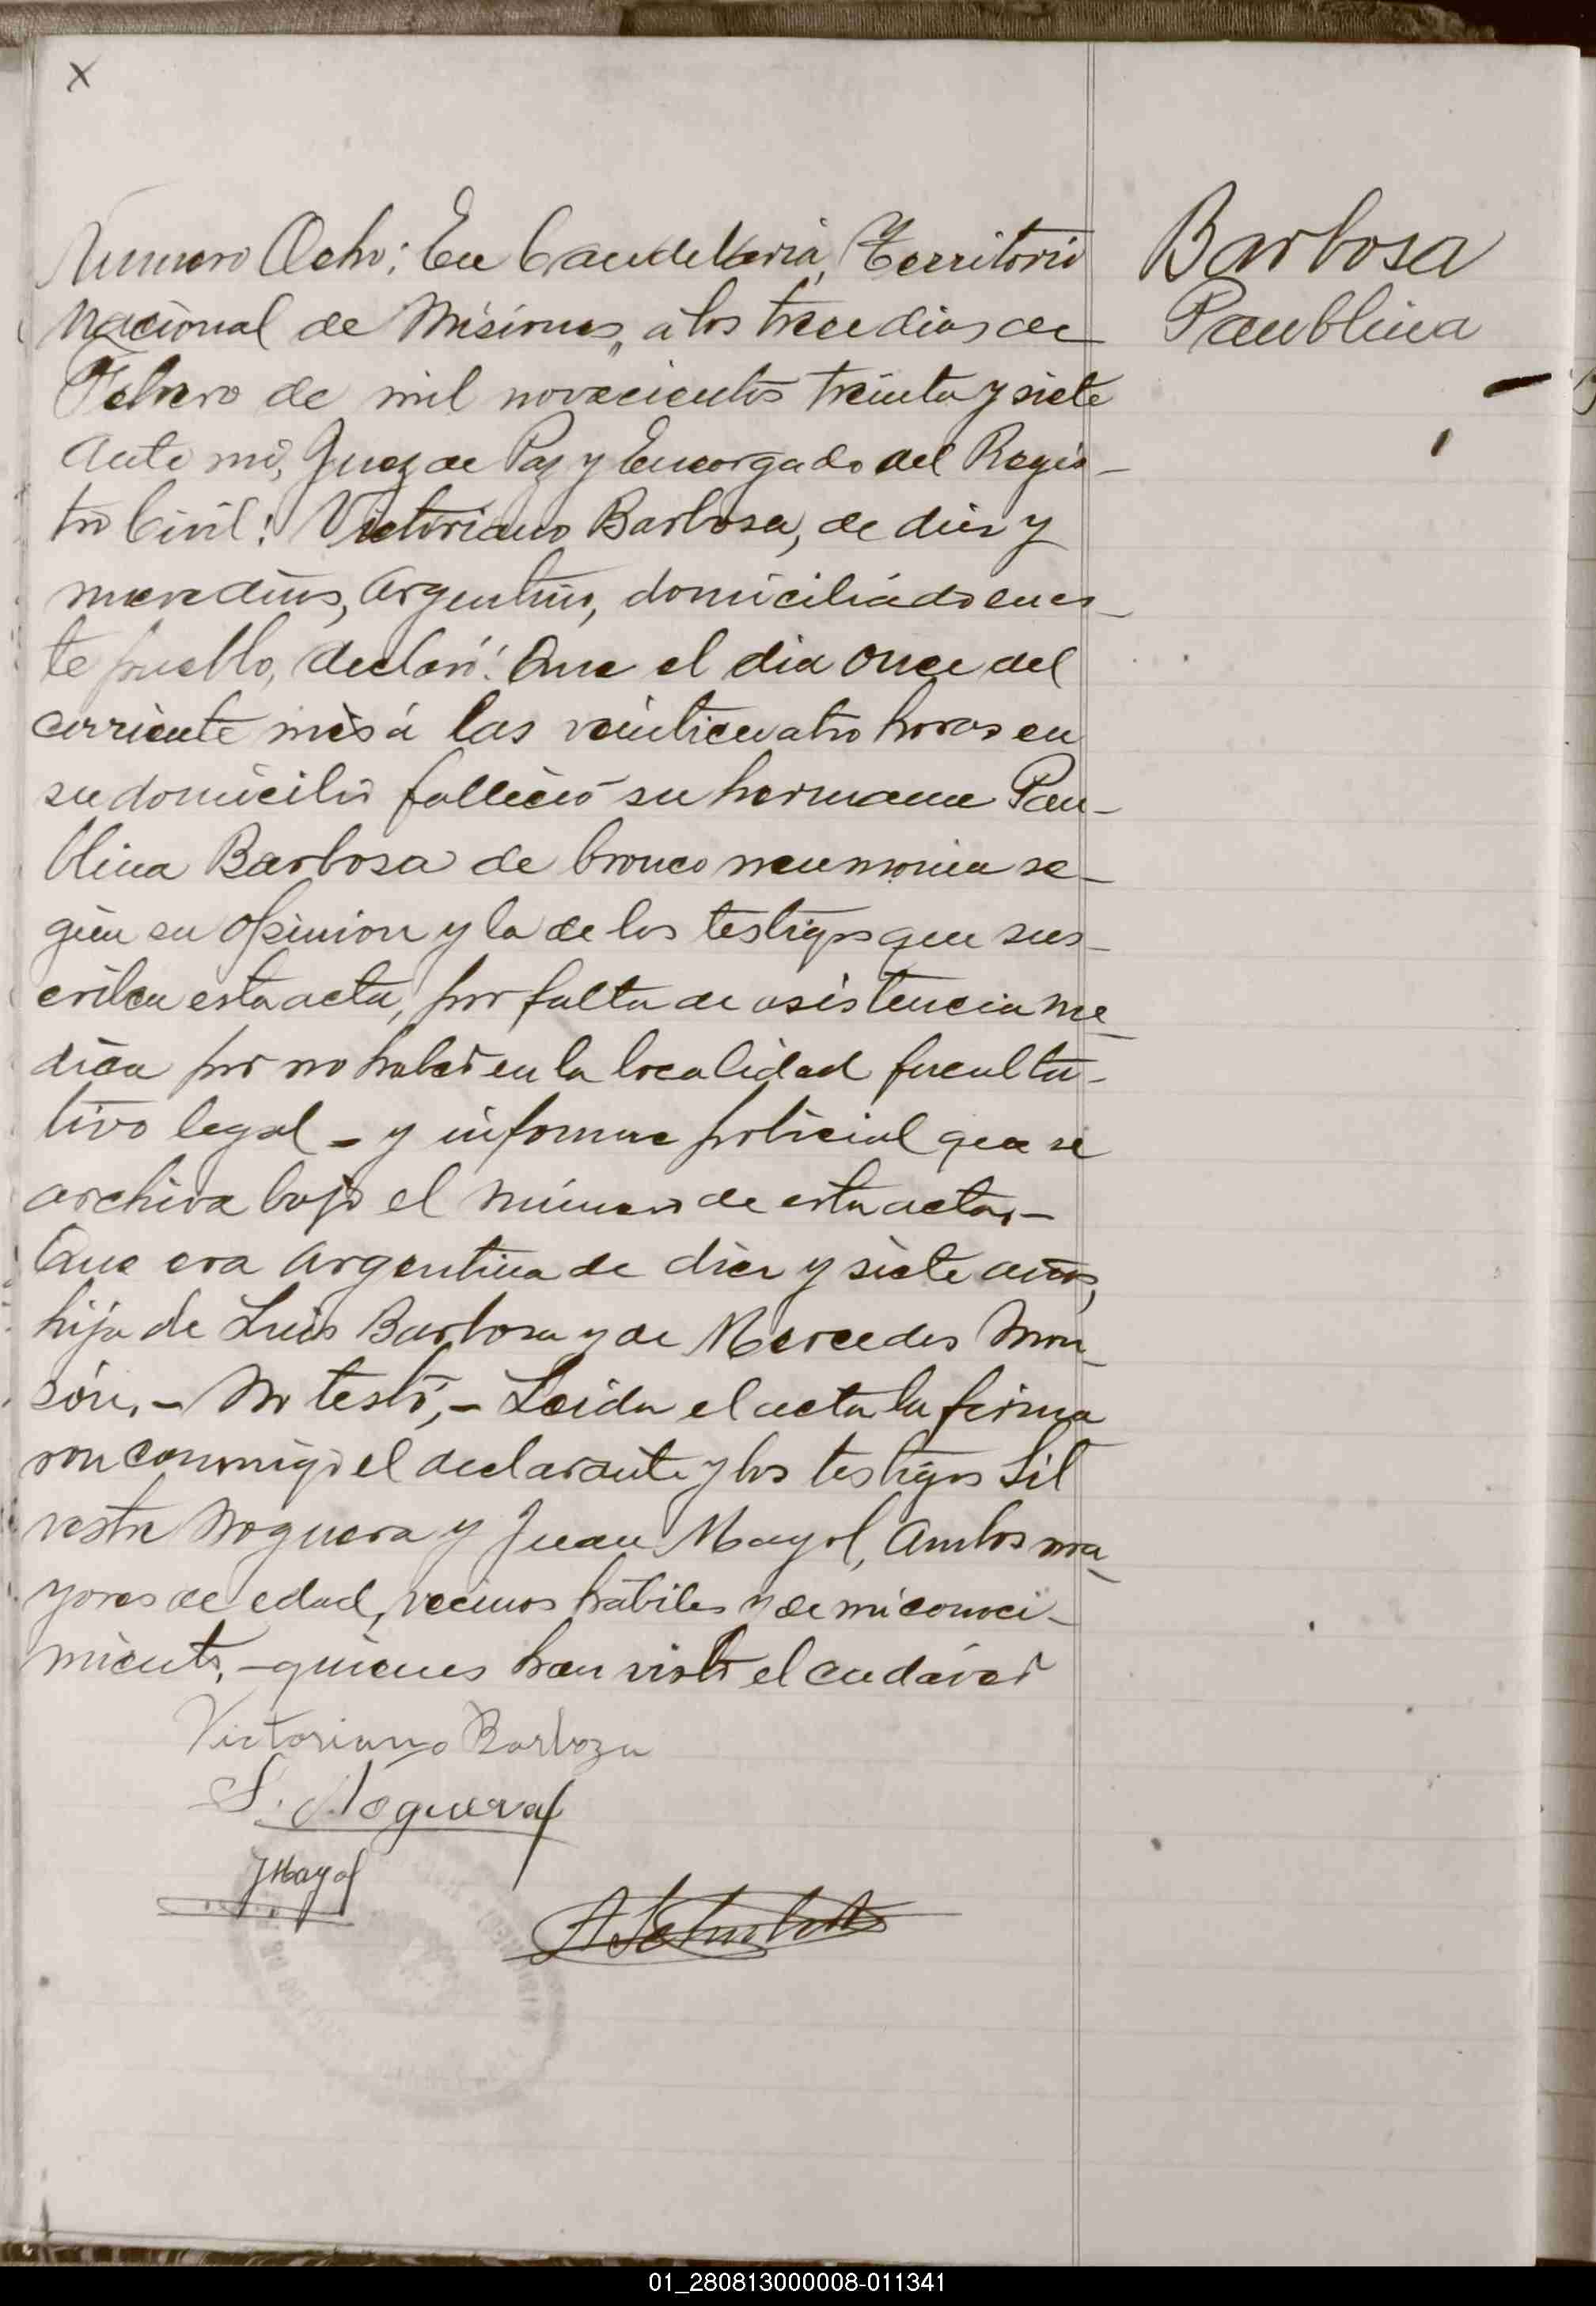 x
Numero Ocho: En Candelaria, Territorio
Nacional de Misiones, a los trece dias de
Febrero de mil novecientos treinta y siete
ante mi, Juez de Paz y Encargado del Regis-
tro Civil: Victoriano Barbosa, de diez y
nueve años, argentino, domiciliado en es-
te pueblo, declaró: Que el dia once del
corriente mes á las veinticuatro horas en
su domicilio falleció su hermana Pau-
blina Barbosa de bronco neumonia se-
gún su opinion y la de los testigos que sus-
criben esta acta, por falta de asistencia me-
dica por no haber en la localidad faculta-
tivo legal - y informe policial que se
archiva bajo el número de esta acta.-
Que era argentina de diez y siete años,
hija de Luis Barbosa y de Mercedes Mon-
són. - No testó, - Leida el acta la firma
ron conmigo el declarante y los testigos Sil
vestre Noguera y Juan Mayol, ambos ma-
yores de edad, vecinos hábiles y de mi conoci-
miento, - quienes han visto el cadáver
Victoriano Barboza
S. Noguera
J Mayol
Barbosa
Paublina
01_280813000008-011341